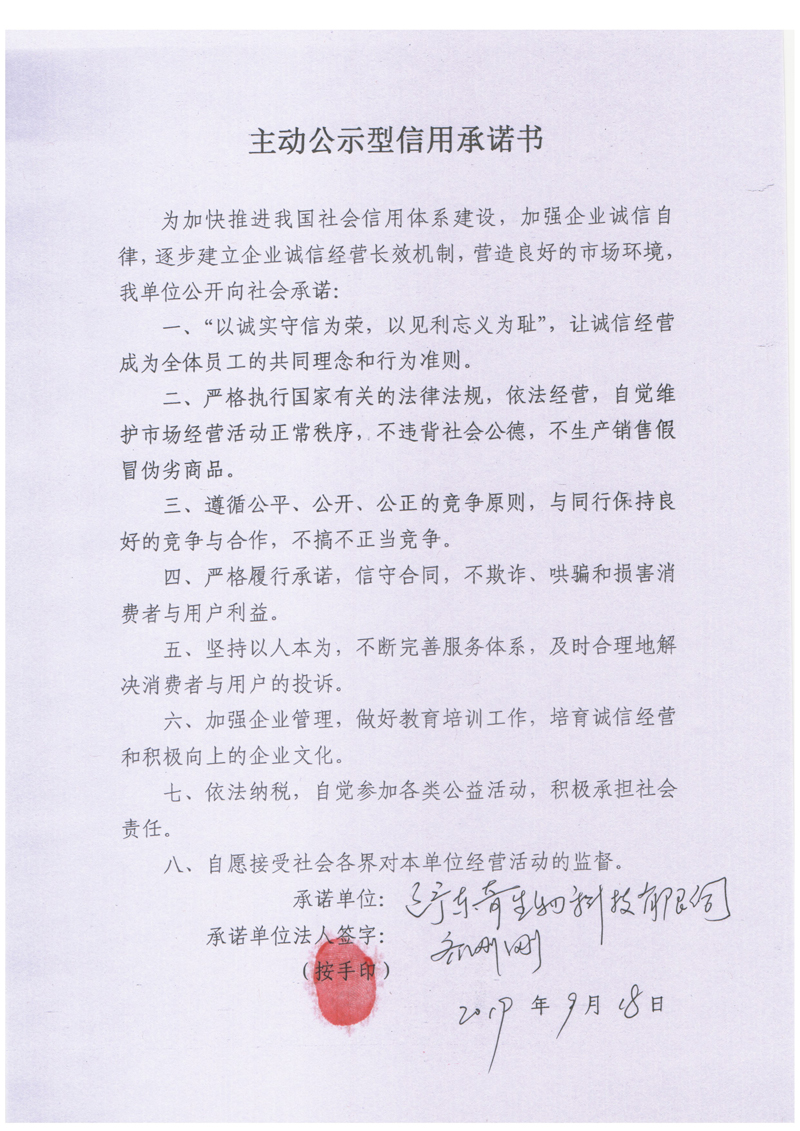 主动公示型信用承诺书
为加快推进我国社会信用体系建设，加强企业诚信自
律，逐步建立企业诚信经营长效机制，营造良好的市场环境，
我单位公开向社会承诺：
一、“以诚实守信为荣，以见利忘义为耻”，让诚信经营
成为全体员工的共同理念和行为准则。
二、严格执行国家有关的法律法规，依法经营，自觉维
护市场经营活动正常秩序，不违背社会公德，不生产销售假
冒伪劣商品。
三、遵循公平、公开、公正的竞争原则，与同行保持良
好的竞争与合作，不搞不正当竞争。
四、严格履行承诺，信守合同，不欺诈、哄骗和损害消
费者与用户利益。
五、坚持以人本为，不断完善服务体系，及时合理地解
决消费者与用户的投诉。
六、加强企业管理，做好教育培训工作，培育诚信经营
和积极向上的企业文化。
七、依法纳税，自觉参加各类公益活动，积极承担社会
责任。
八、自愿接受社会各界对本单位经营活动的监督。
承诺单位：辽宁东奇生物科技有限公司
承诺单位法人签字：
（按手印）
2019年9月18日